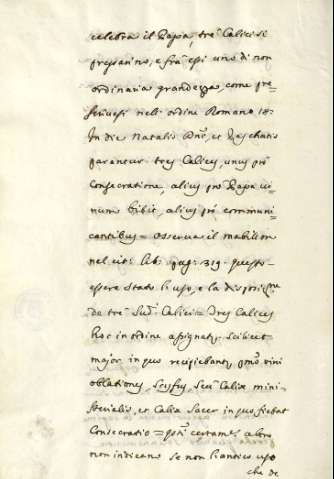 celebra il Papa, tre Calici si
preparino, e fra essi uno di non
ordinaria grandezza, come pre=
scrivesi nell' ordine Romano
In die Natalis Dni, et Paschatis
parantur tres Calices, unus pro
Consecratione, alius pro Papa vi=
num bibit, alius pro communi=
cantibus = Osserva il mabillon
nel cit: lib: pag: 319. questo
essere stato l'uso, e la disposizione
de' tre Sud.i Calici = Tres Calices
hoc in ordine assignat, scilicet
major, in quo recipiebant vini
oblationes, Scyfus, seu Calix mini=
sterialis, et Calix Sacer in quo fiebat
Consecratio = certamente altro
non indicano se non l'antico uso
che de